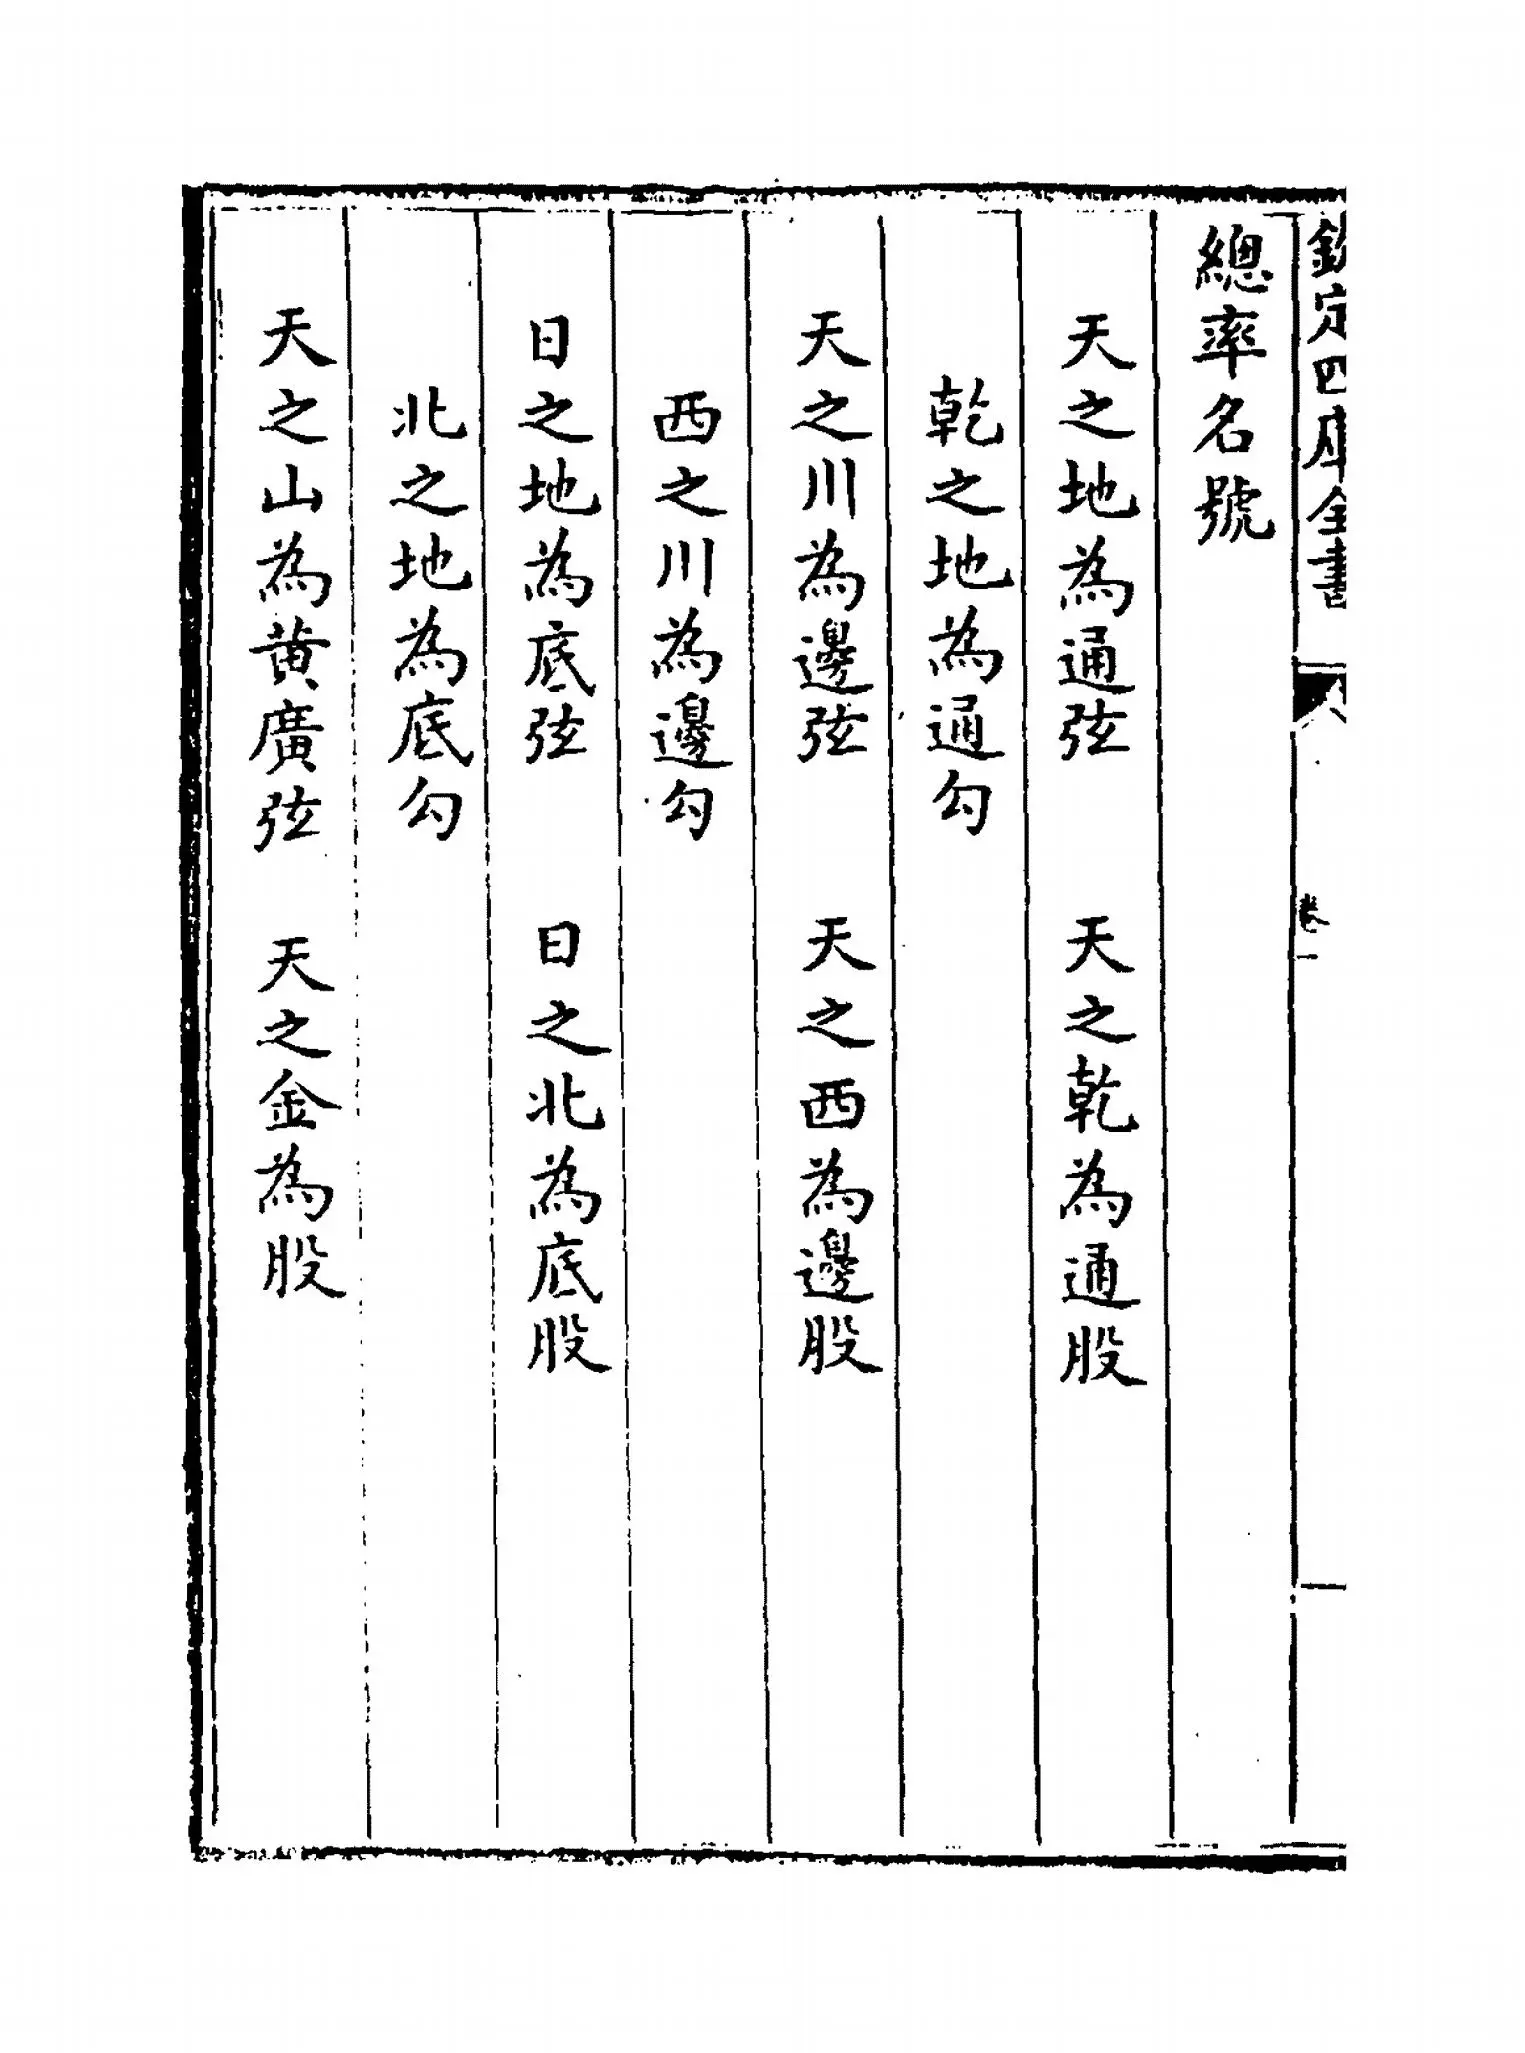 欽定四庫全書
卷一
總率名號
天之地為通弦　天之乾為通股
乾之地為通勾
天之川為邊弦　天之西為邊股
西之川為邊勾
日之地為底弦　日之北為底股
北之地為底勾
天之山為黄廣弦　天之金為股